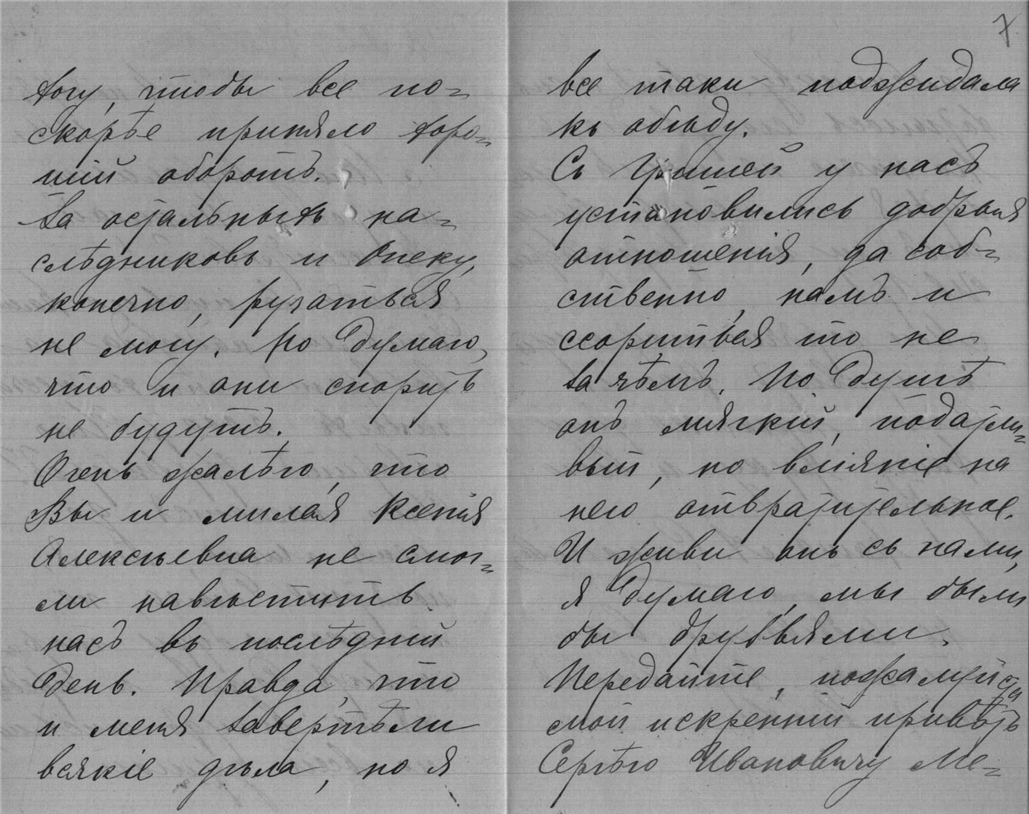 тому, чтобы все по=
скорѣе приняло хоро=
шій оборотъ.
За остальныхъ на=
слѣдниковъ и Опеку,
конечно, ручаться
не могу. Но думаю,
что и они спорить
не будутъ.
Очень жалѣю, что
Вы и милая Ксенія
Алексѣевна не смог=
ли навѣстить
насъ въ послѣдній
день. Правда, что
и меня завертѣли
всякіе дѣла, но я
7
все таки поджидала
къ обѣду.
Съ Гришей у насъ
установились добрыя
отношенія, да соб=
ственно, намъ и
ссориться то не
за чѣмъ. По душѣ
онъ мягкій, податли=
вый, но вліяніе на
него отвратительное.
И живи онъ съ нами,
я думаю, мы были
бы друзьями.
Передайте, пожалуйста
мой искренній привѣтъ
Сергѣю Ивановичу Ме=